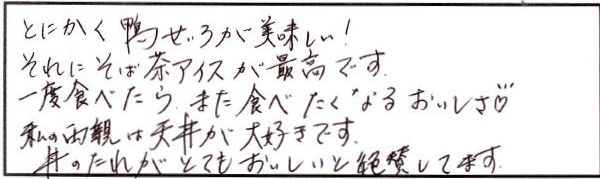 とにかく鴨せいろが美味しい!
それにそば茶アイスが最高です.
一度食べたら、また食べたくなるおいしさ♡
私の両親は天丼が大好きです.
丼のたれがとてもおいしいと絶賛してます.